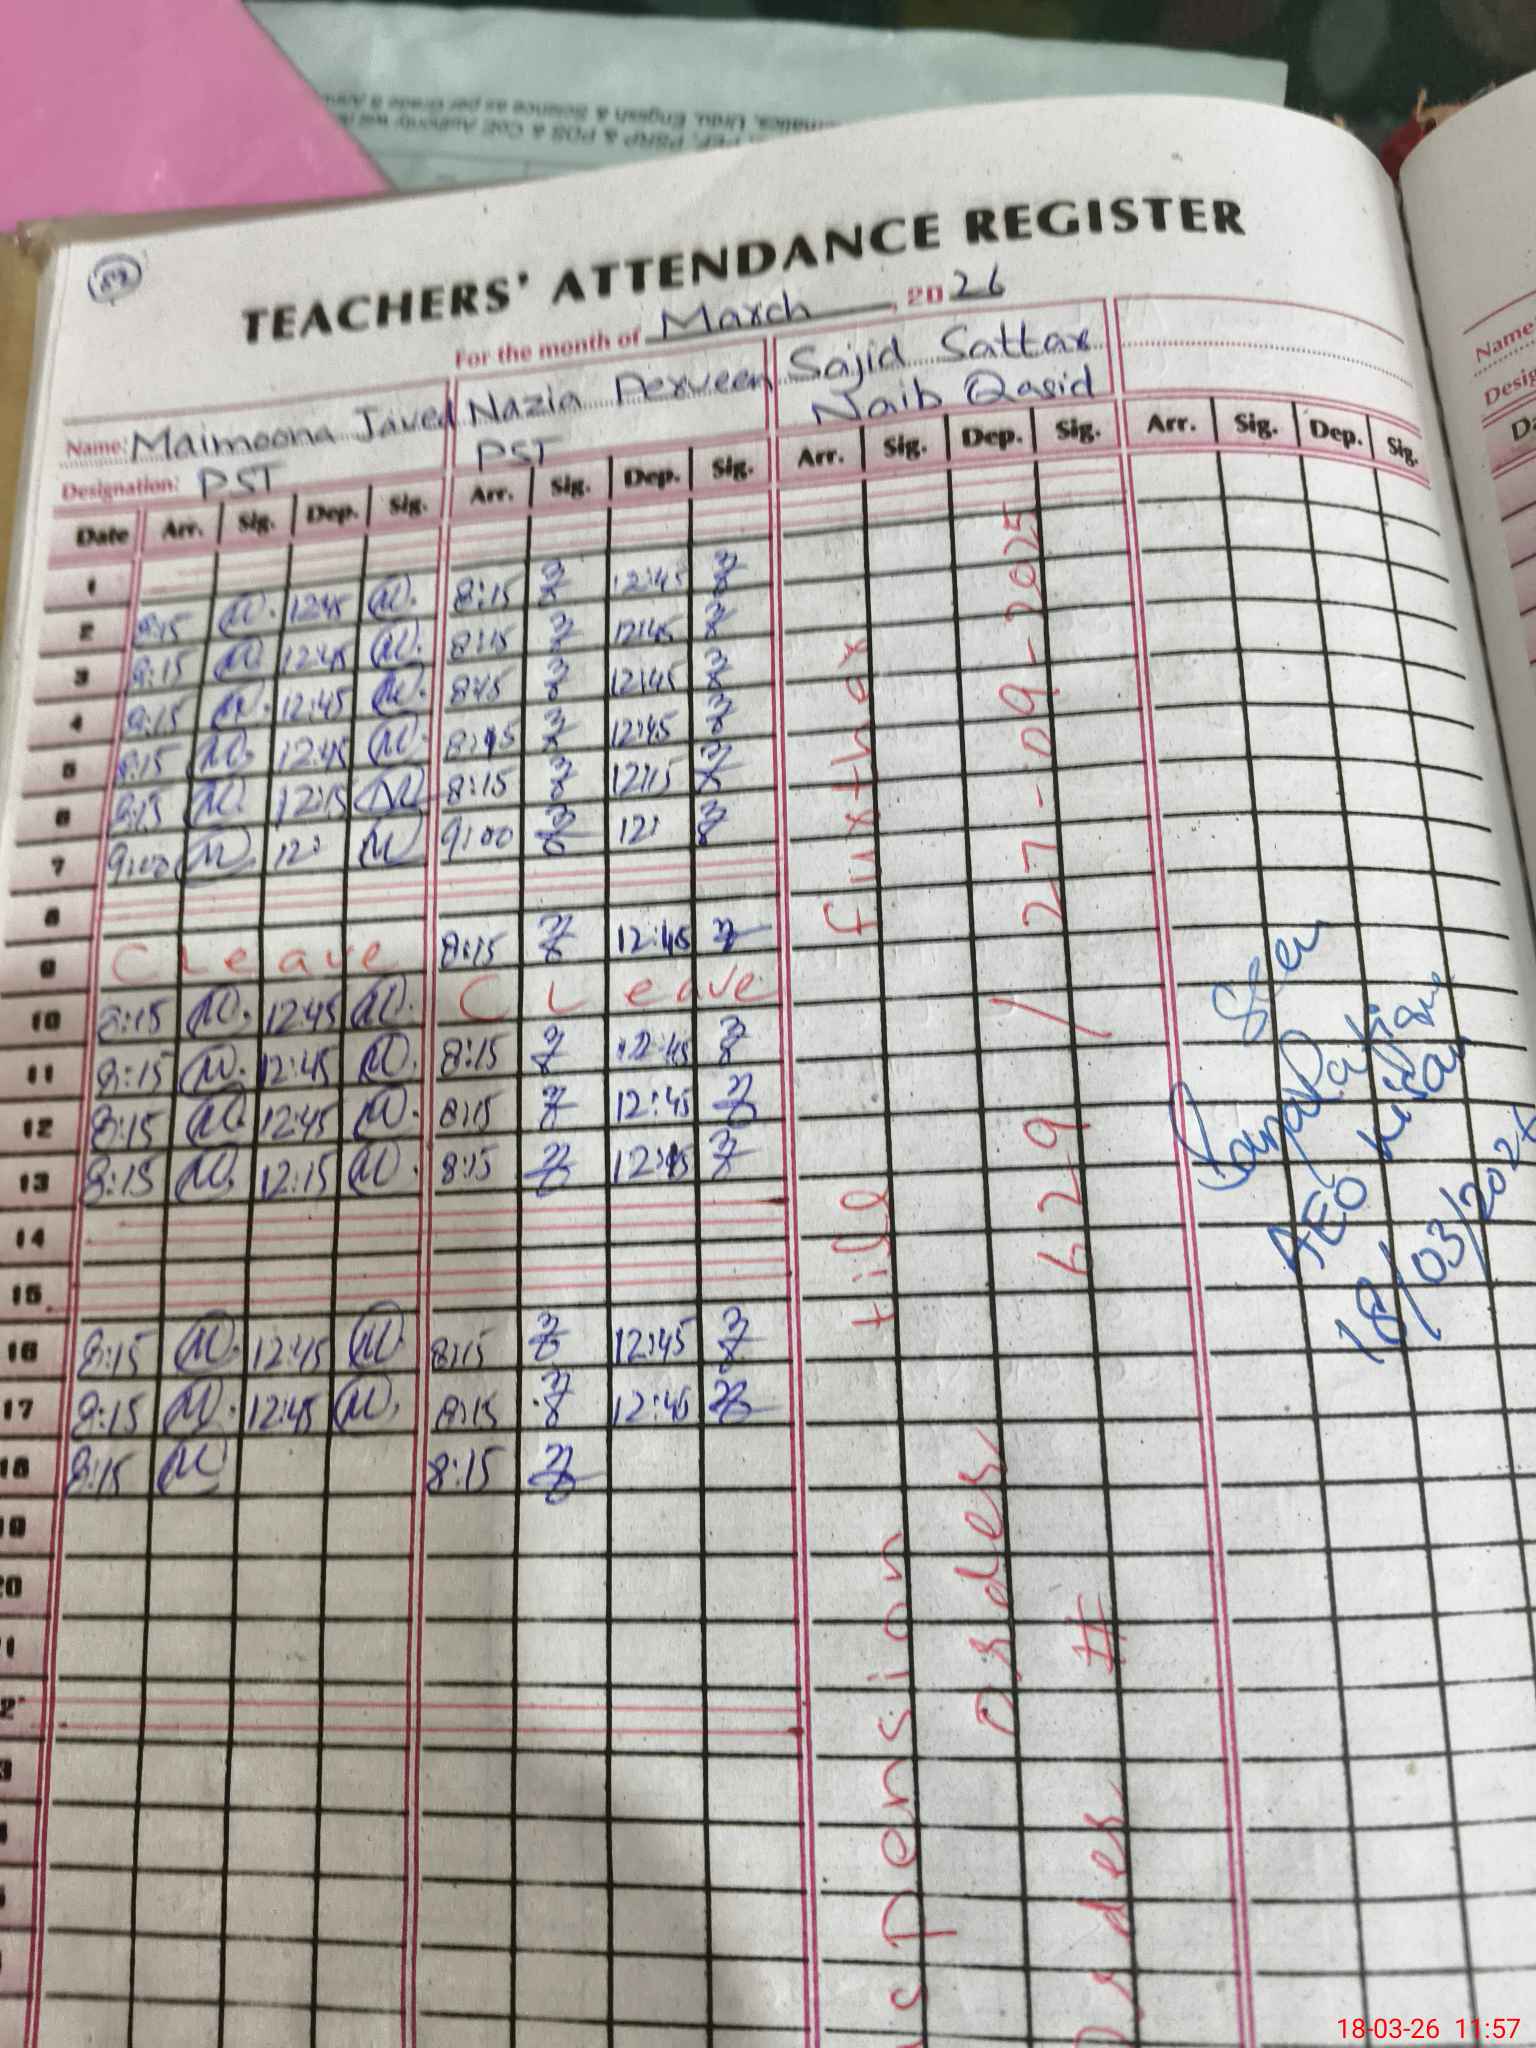 TEACHERS' ATTENDANCE REGISTER
For the month of March, 2026
Name: Maimoona Javed Nazia Perveen Sajid Sattar
Designation: PST PST Naib Qasid
Date Arr. Sig. Dep. Sig. Arr. Sig. Dep. Sig. Arr. Sig. Dep. Sig. Arr. Sig. Dep. Sig.
1
2 8:15 12:45 8:15 12:45
3 8:15 12:45 8:15 12:45
4 8:15 12:45 8:15 12:45
5 8:15 12:45 8:15 12:45
6 8:15 12:15 8:15 12:15
7 9:00 12: 9:00 12:
8
9 C Leave 8:15 12:45
10 8:15 12:45 C Leave
11 8:15 12:45 8:15 12:45
12 8:15 12:45 8:15 12:45
13 8:15 12:15 8:15
14
15
16 8:15 12:45 8:15 12:45
17 8:15 12:45 8:15 12:45
18 8:15 8:15
19
20
till further
order 27-09-2025
order # 629/
Seen
AEO
18/03/202
Name
18-03-26 11:57